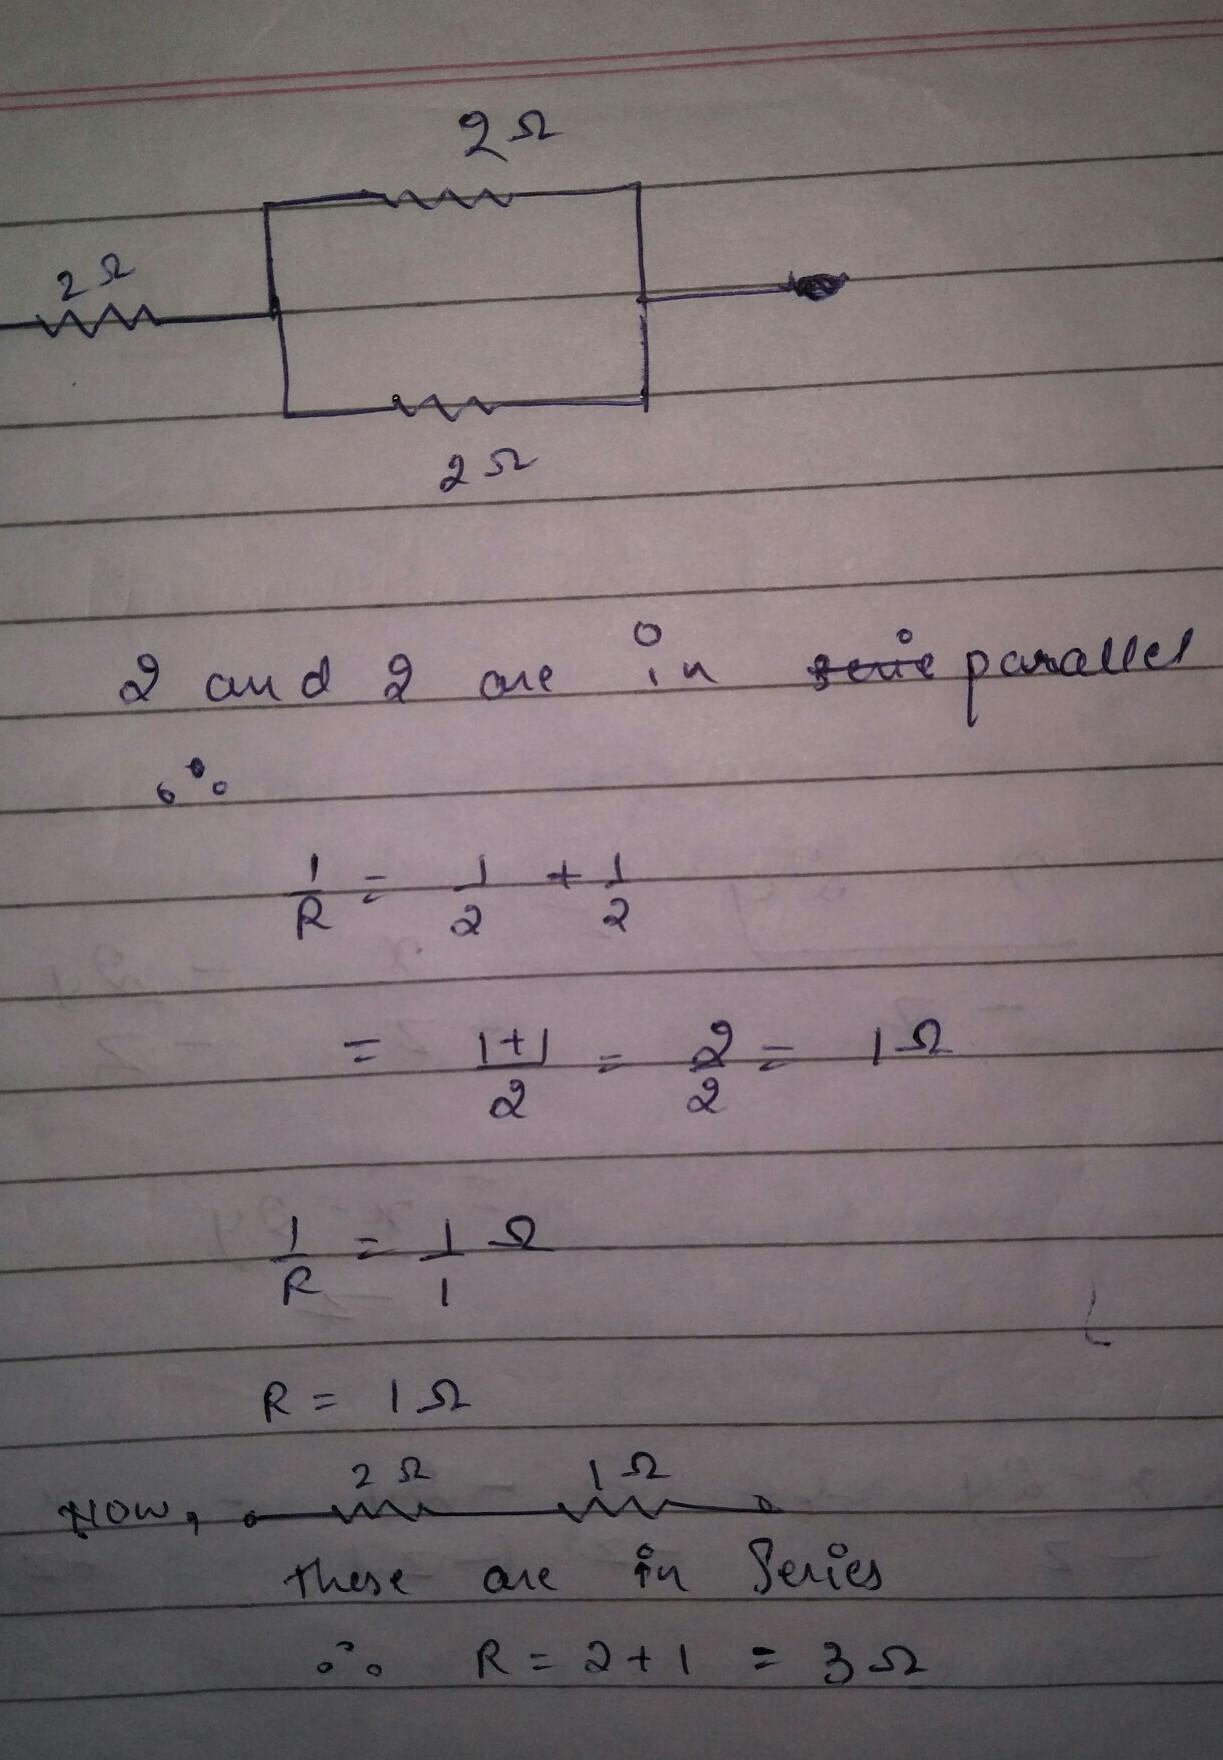 2 Ω
2 Ω
2 Ω
2 and 2 are in serie parallel
∴
1/R = 1/2 + 1/2
= 1+1/2 = 2/2 = 1 Ω
1/R = 1/1 Ω
R = 1 Ω
2 Ω 1 Ω
Now,
these are in Series
∴ R = 2 + 1 = 3 Ω